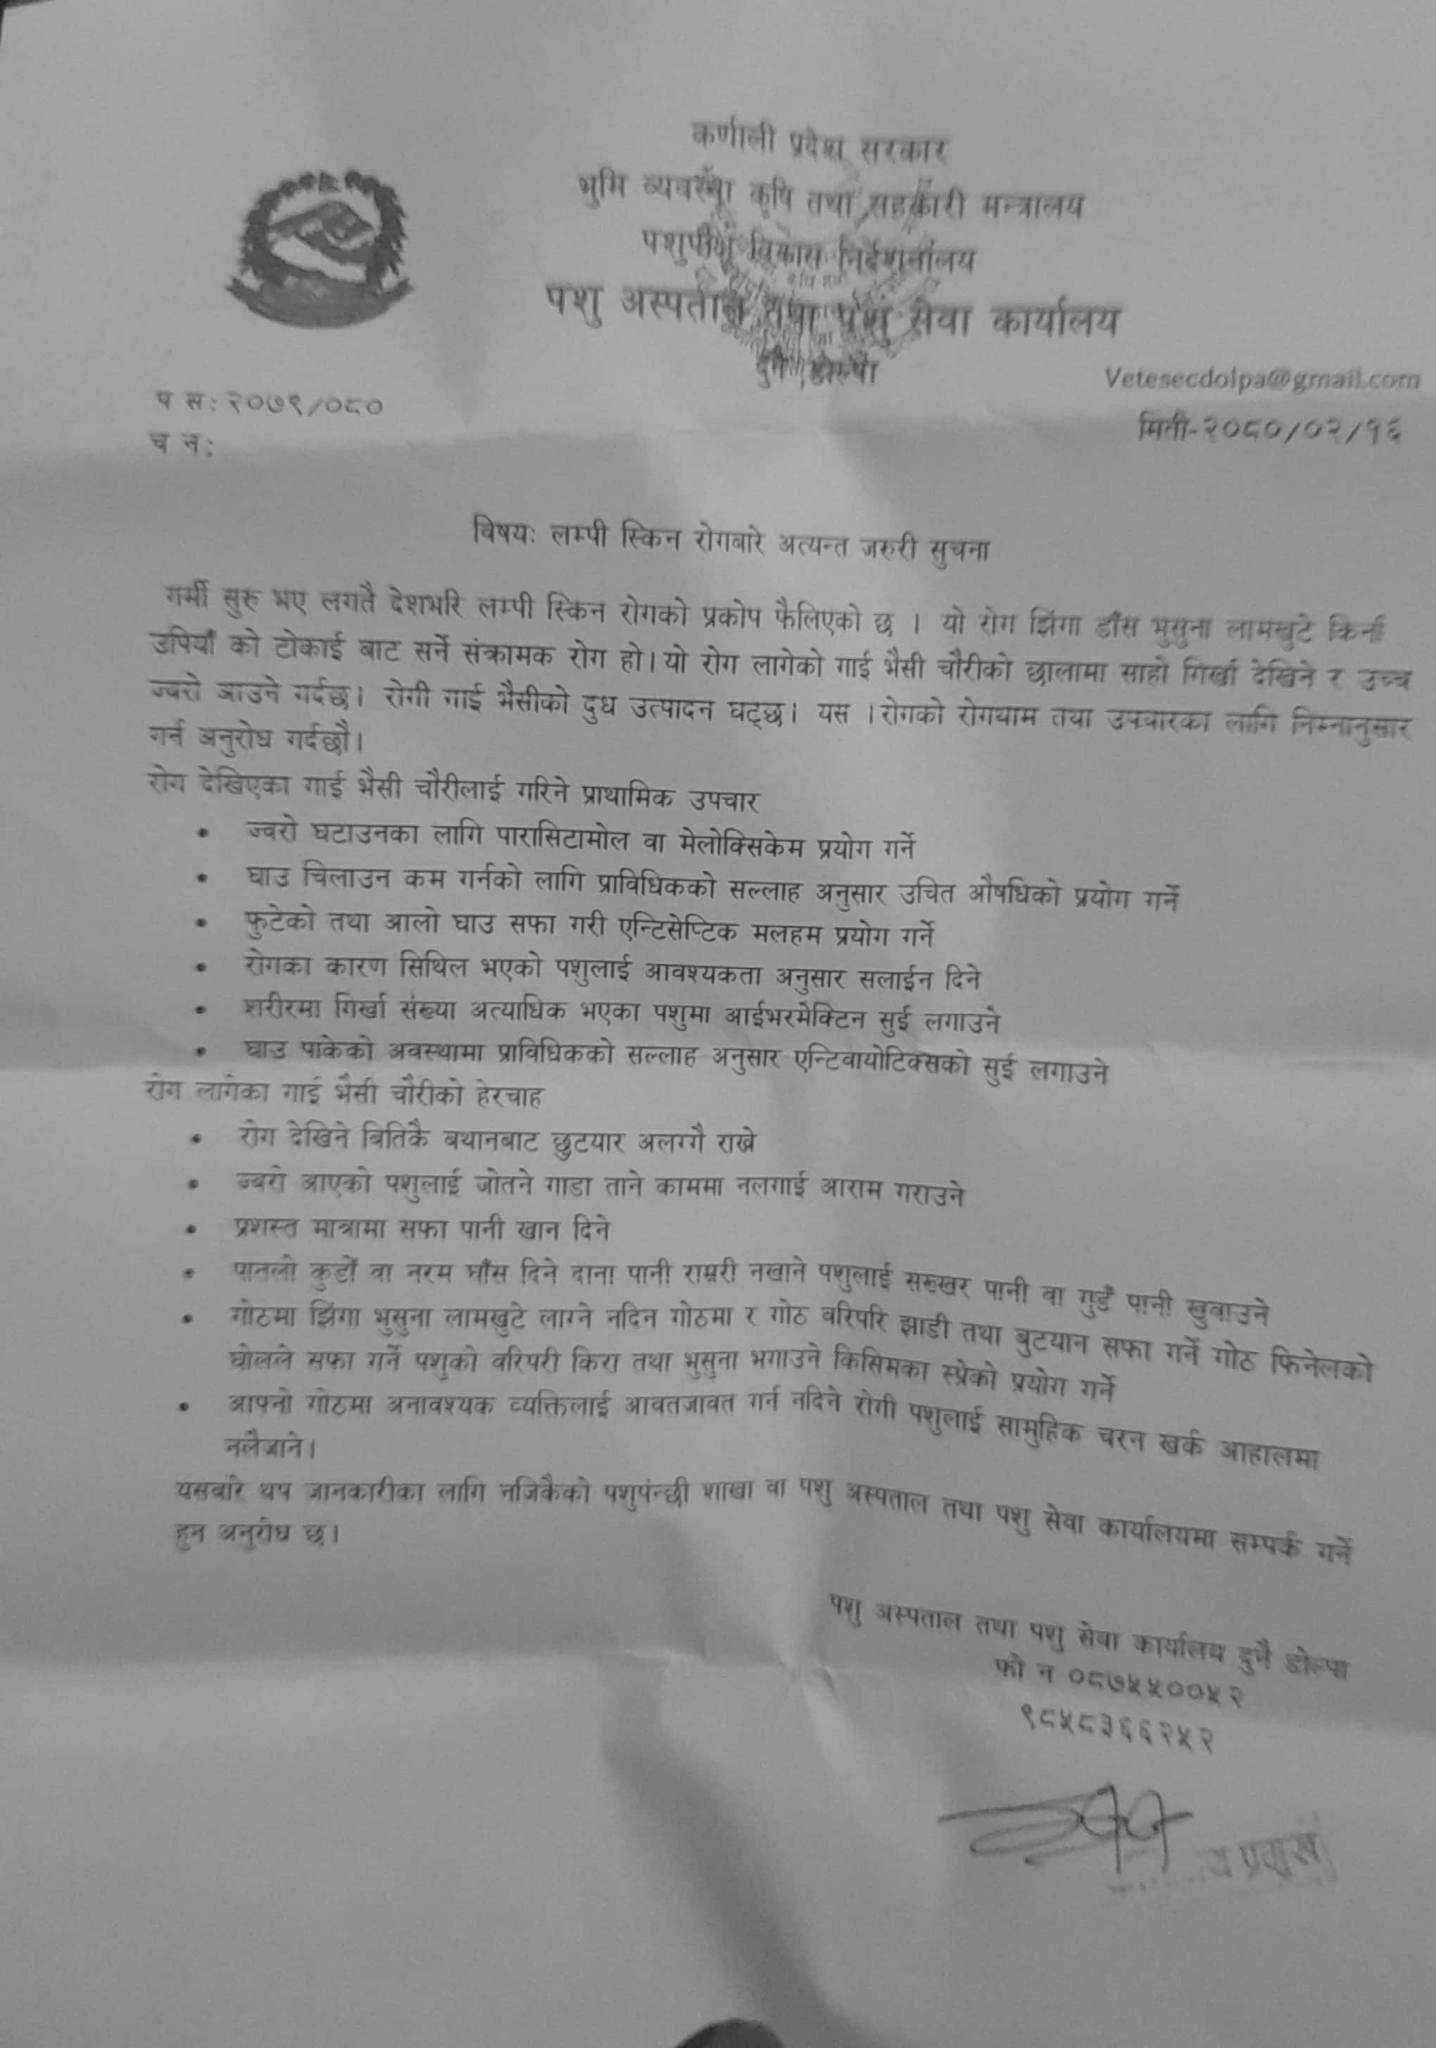 कर्णाली प्रदेश सरकार
भुमि व्यवस्था कृषि तथा सहकारी मन्त्रालय
विकास निर्देशनालय
पशु अस्पताल तथा पशु सेवा कार्यालय
दुनै डोल्पा
Vetesecdolpa@gmail.com
प स: २०७९/०८०
मिती-२०८०/०२/१६
च न:
विषय: लम्पी स्किन रोगबारे अत्यन्त जरुरी सुचना
गर्मी सुरु भए लगतै देशभरि लम्पी स्किन रोगको प्रकोप फैलिएको छ । यो रोग झिंगा डाँस भुसुना लामखुटे किर्ना
उपियाँ को टोकाई बाट सर्ने संक्रामक रोग हो। यो रोग लागेको गाई भैसी चौरीको छालामा साहो गिर्खा देखिने र उच्च
ज्वरो आउने गर्दछ। रोगी गाई भैसीको दुध उत्पादन घट्छ। यस । रोगको रोगथाम तथा उपचारका लागि निम्नानुसार
गर्न अनुरोध गर्दछौ।
रोग देखिएका गाई भैसी चौरीलाई गरिने प्राथामिक उपचार
• ज्वरो घटाउनका लागि पारासिटामोल वा मेलोक्सिकेम प्रयोग गर्ने
• घाउ चिलाउन कम गर्नको लागि प्राविधिकको सल्लाह अनुसार उचित औषधिको प्रयोग गर्ने
• फुटेको तथा आलो घाउ सफा गरी एन्टिसेप्टिक मलहम प्रयोग गर्ने
• रोगका कारण सिथिल भएको पशुलाई आवश्यकता अनुसार सलाईन दिने
• शरीरमा गिर्खा संख्या अत्याधिक भएका पशुमा आईभरमेक्टिन सुई लगाउने
• घाउ पाकेको अवस्थामा प्राविधिकको सल्लाह अनुसार एन्टिवायोटिक्सको सुई लगाउने
रोग लागेका गाई भैसी चौरीको हेरचाह
• रोग देखिने बितिकै बथानबाट छुटयार अलग्गै राख्ने
• ज्वरो आएको पशुलाई जोतने गाडा ताने काममा नलगाई आराम गराउने
• प्रशस्त मात्रामा सफा पानी खान दिने
• पातलो कुडोँ वा नरम घाँस दिने दाना पानी राम्ररी नखाने पशुलाई सख्खर पानी वा गुडँ पानी खुवाउने
• गोठमा झिंगा भुसुना लामखुटे लाग्ने नदिन गोठमा र गोठ वरिपरि झाडी तथा बुटयान सफा गर्ने गोठ फिनेलको
घोलले सफा गर्ने पशुको वरिपरी किरा तथा भुसुना भगाउने किसिमका स्प्रेको प्रयोग गर्ने
• आफ्नो गोठमा अनावश्यक व्यक्तिलाई आवतजावत गर्न नदिने रोगी पशुलाई सामुहिक चरन खर्क आहालमा
नलैजाने।
यसबारे थप जानकारीका लागि नजिकैको पशुपंन्छी शाखा वा पशु अस्पताल तथा पशु सेवा कार्यालयमा सम्पर्क गर्ने
हुन अनुरोध छ।
पशु अस्पताल तथा पशु सेवा कार्यालय दुनै डोल्पा
फो न ०८७५५००५२
९८५८३६६२५२
प्रमुख